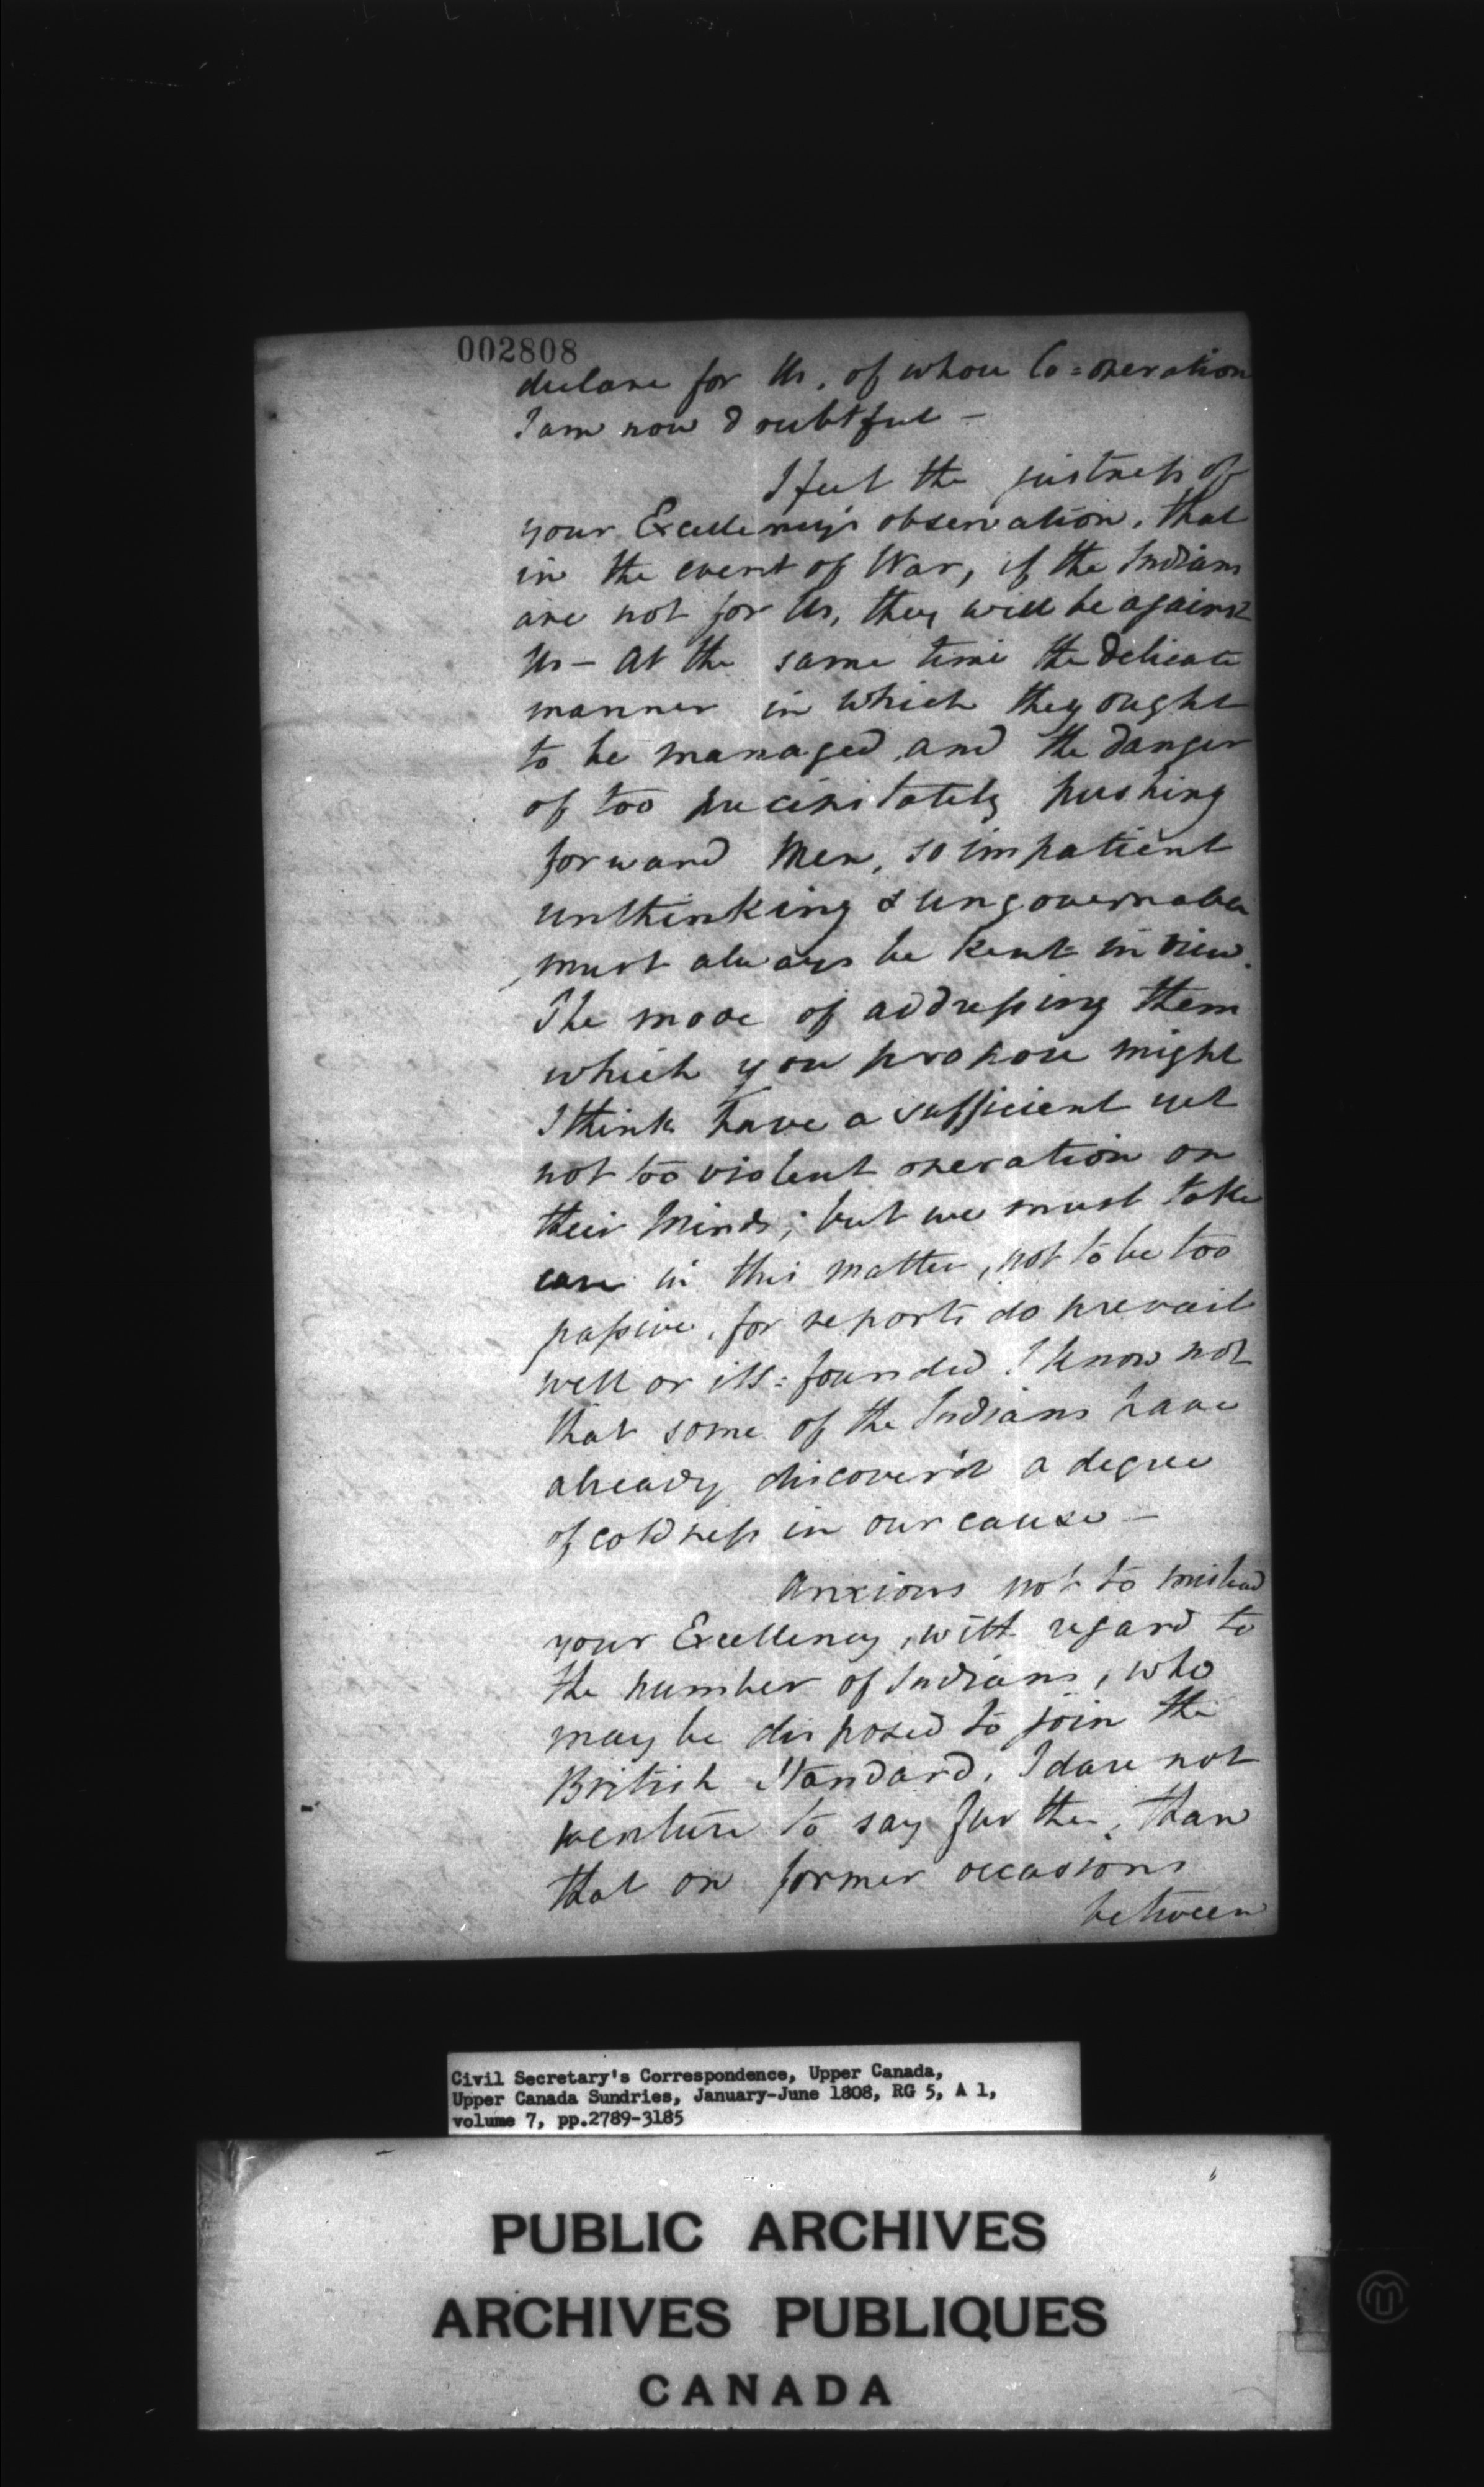 002808
declare for Us, of whose Co=operation
I am now doubtful —
I feel the justness of
your Excellency's observation, that
in the event of War, if the Indians
are not for Us, they will be against
Us — At the same time the delicate
manner in which they ought
to be managed, and the danger
of too precipitately pushing
forward Men, so impatient
unthinking & ungovernable
must always be kept in view.
The mode of addressing them
which you propose might
I think have a sufficient yet
not too violent operation on
their Minds; but we must take
care in this matter, not to be too
passive, for reports do prevail
well or ill=founded I know not
that some of the Indians have
already discover'd a degree
of coldness in our cause —
Anxious not to mislead
your Excellency, with regard to
the number of Indians, who
may be disposed to join the
British Standard, I dare not
venture to say further, than
that on former occasions
between
Civil Secretary's Correspondence, Upper Canada,
Upper Canada Sundries, January-June 1808, RG 5, A 1,
volume 7, pp.2789-3185
PUBLIC ARCHIVES
ARCHIVES PUBLIQUES
CANADA